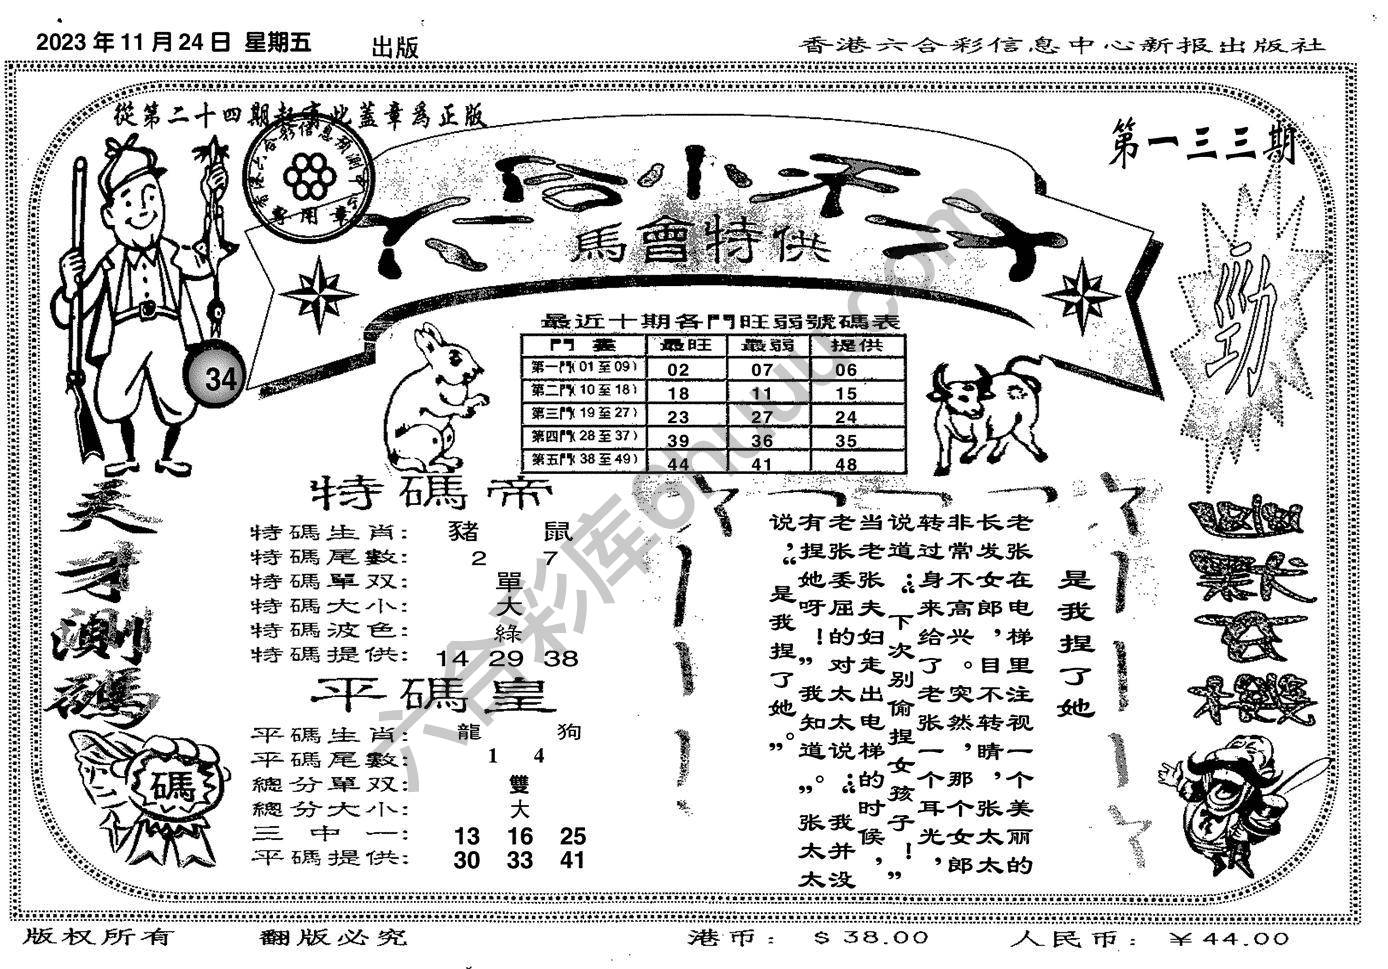 2023 年 11 月 24 日 星期五
出版
香港六合彩信息中心新报出版社
從第二十四期起察此蓋章爲正版
第一三三期
六合小天子
馬會特供
勁
34
專用章
最近十期各門旺弱號碼表
門 最旺 最弱 提供
第一門(01 至 09) 02 07 06
第二門(10 至 18) 18 11 15
第三門(19 至 27) 23 27 24
第四門(28 至 37) 39 36 35
第五門(38 至 49) 44 41 48
天才測碼
碼
特碼帝
特碼生肖: 豬 鼠
特碼尾數: 2 7
特碼單双: 單
特碼大小: 大
特碼波色: 綠
特碼提供: 14 29 38
平碼皇
平碼生肖: 龍 狗
平碼尾數: 1 4
總分單双: 雙
總分大小: 大
三中一: 13 16 25
平碼提供: 30 33 41
是我捏了她
老张在电梯里注视一个美丽的
长发女郎，目不转睛，张太太
非常不高兴。突然，那个女郎
转过身来给了老张一个耳光，
说道：“下次别偷捏女孩子！”
当老张夫妇走出电梯的时候，
老张委屈的对太太说：“我并没
有捏她呀！”“我知道。”张太太
说，“是我捏了她。”
六合彩库6huu.com
版权所有
翻版必究
港币： $ 38.00
人民币： ¥ 44.00